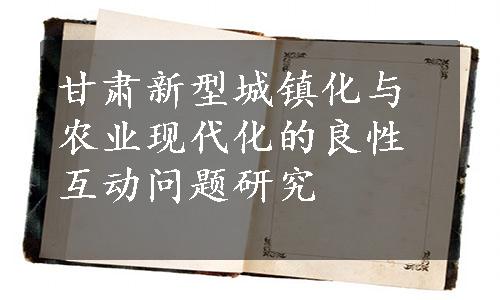 甘肃新型城镇化与
农业现代化的良性
互动问题研究